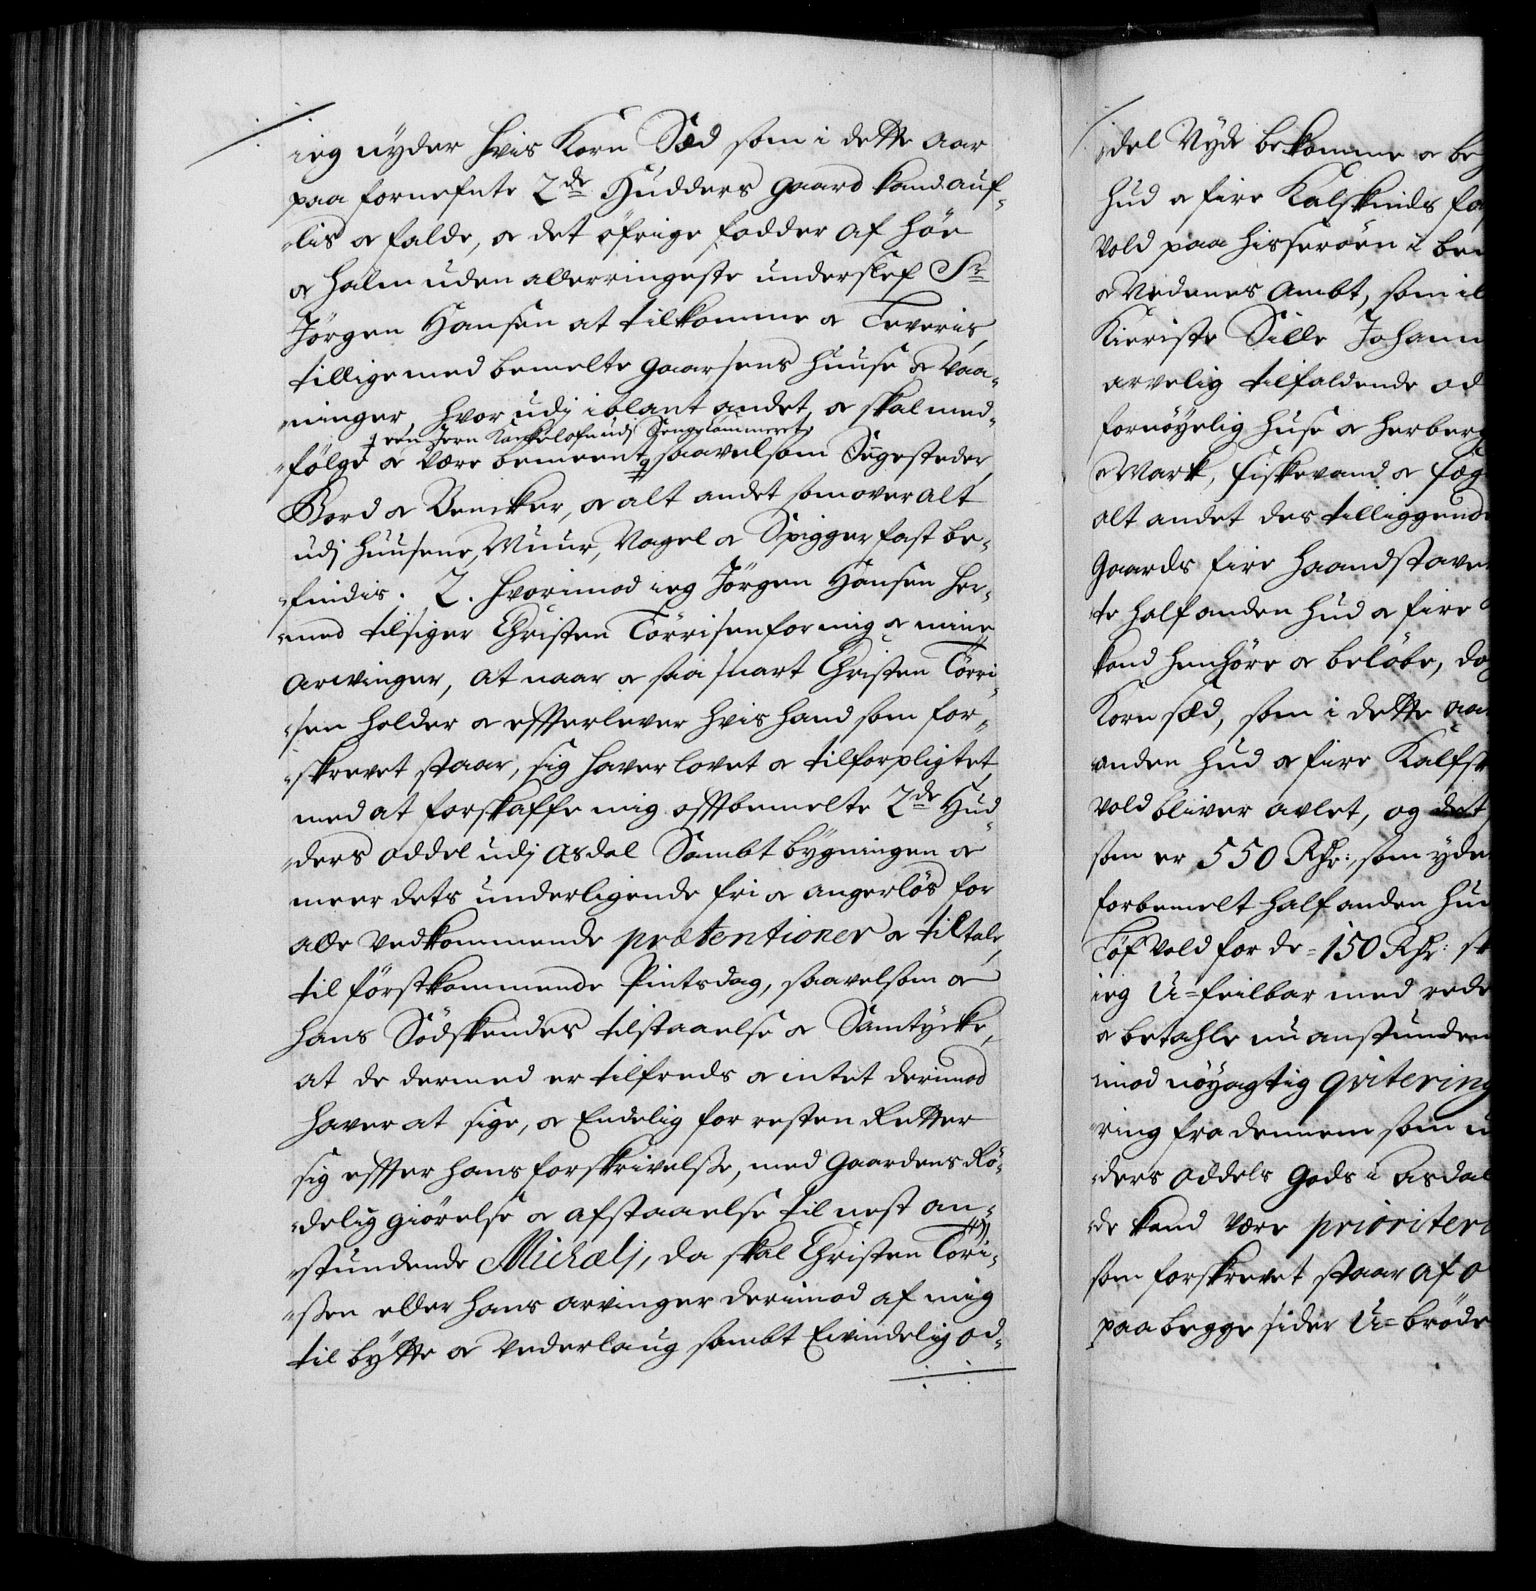 ieg nyder hvis Korn Sæd som i dette Aar
paa fornefnte 2de Hudders gaard kand auf-
lis og falde, og det öfrige fodder af Höe
og halm uden allerringeste underslef Sr
Jörgen Hansen at tilkomme og Leveris,
tilligemed bemelte gaarsens Huuse og Vaa-
ninger, hvor udj iblant andet, og skal med-
een Jern Kackelofn udj Sengekammeret,
fölge og være bemeent saavelsom Sengesteder,
Bord og Bencker, og alt andet som over alt
udj Huusene, Muur, Nagel og Spigger fast be-
findis. 2. Hvorimod ieg Jörgen Hansen her-
med tilsiger Christen Törrisen for mig og mine
Arvinger, at naar og saa snart Christen Törri-
sen holder og effterlever hvis hand som for-
skrevet staar, sig haver lovet og tilforpligtet,
med at forskaffe mig offtbemelte 2de Hud-
ders oddel udj Asdal Sambt bygningen og
meer dets underligende fri og angerlös for
alle Vedkommende prætentioner og tiltale,
til förstkommende Pintsdag, saavelsom og
hans Södskendes tilstaaelse og Samtycke,
at de dermed er tilfreds og intet derimod
haver at sige, og Endelig for resten Retter
sig effter hans forskrivelsse, med Gaardens Rö-
delig giörelse og afstaaelse til nest an-
stundende Michælj, da skal Christen Töri-
ssen eller hans arvinger derimod af mig
til bytte og Vederlaug sambt Evindelig od-
del Nyde bekomme og be
Hud og fire Kalfskinds
Vold paa Hisseröen i
og Nedenes Ambt, som
Kieriste Sille Johann
arvelig tilfaldende od
fornöyelig Huse og Herberg
og Mark, fiskevand og fæg
alt andet des tilliggende
Gaards fire Haandstave
te half anden Hud og fire
kand henhöre og belöbe,
Korn sæd, som i dette aa
anden Hud og fire Kalfsk
Vold bliver avlet, og det
som er 550 Rdr: som yde
forbemelt half anden Hud
Töf Vold for de = 150 Rdr:
ieg U=feilbar med rede
og betahle nu anstunden
imod nöyagtig qvitering
ring fra dennem som
ders oddels Gods i Asdal
de kand være prioriter
som forskrevet staar af
paa begge sider U=bröde